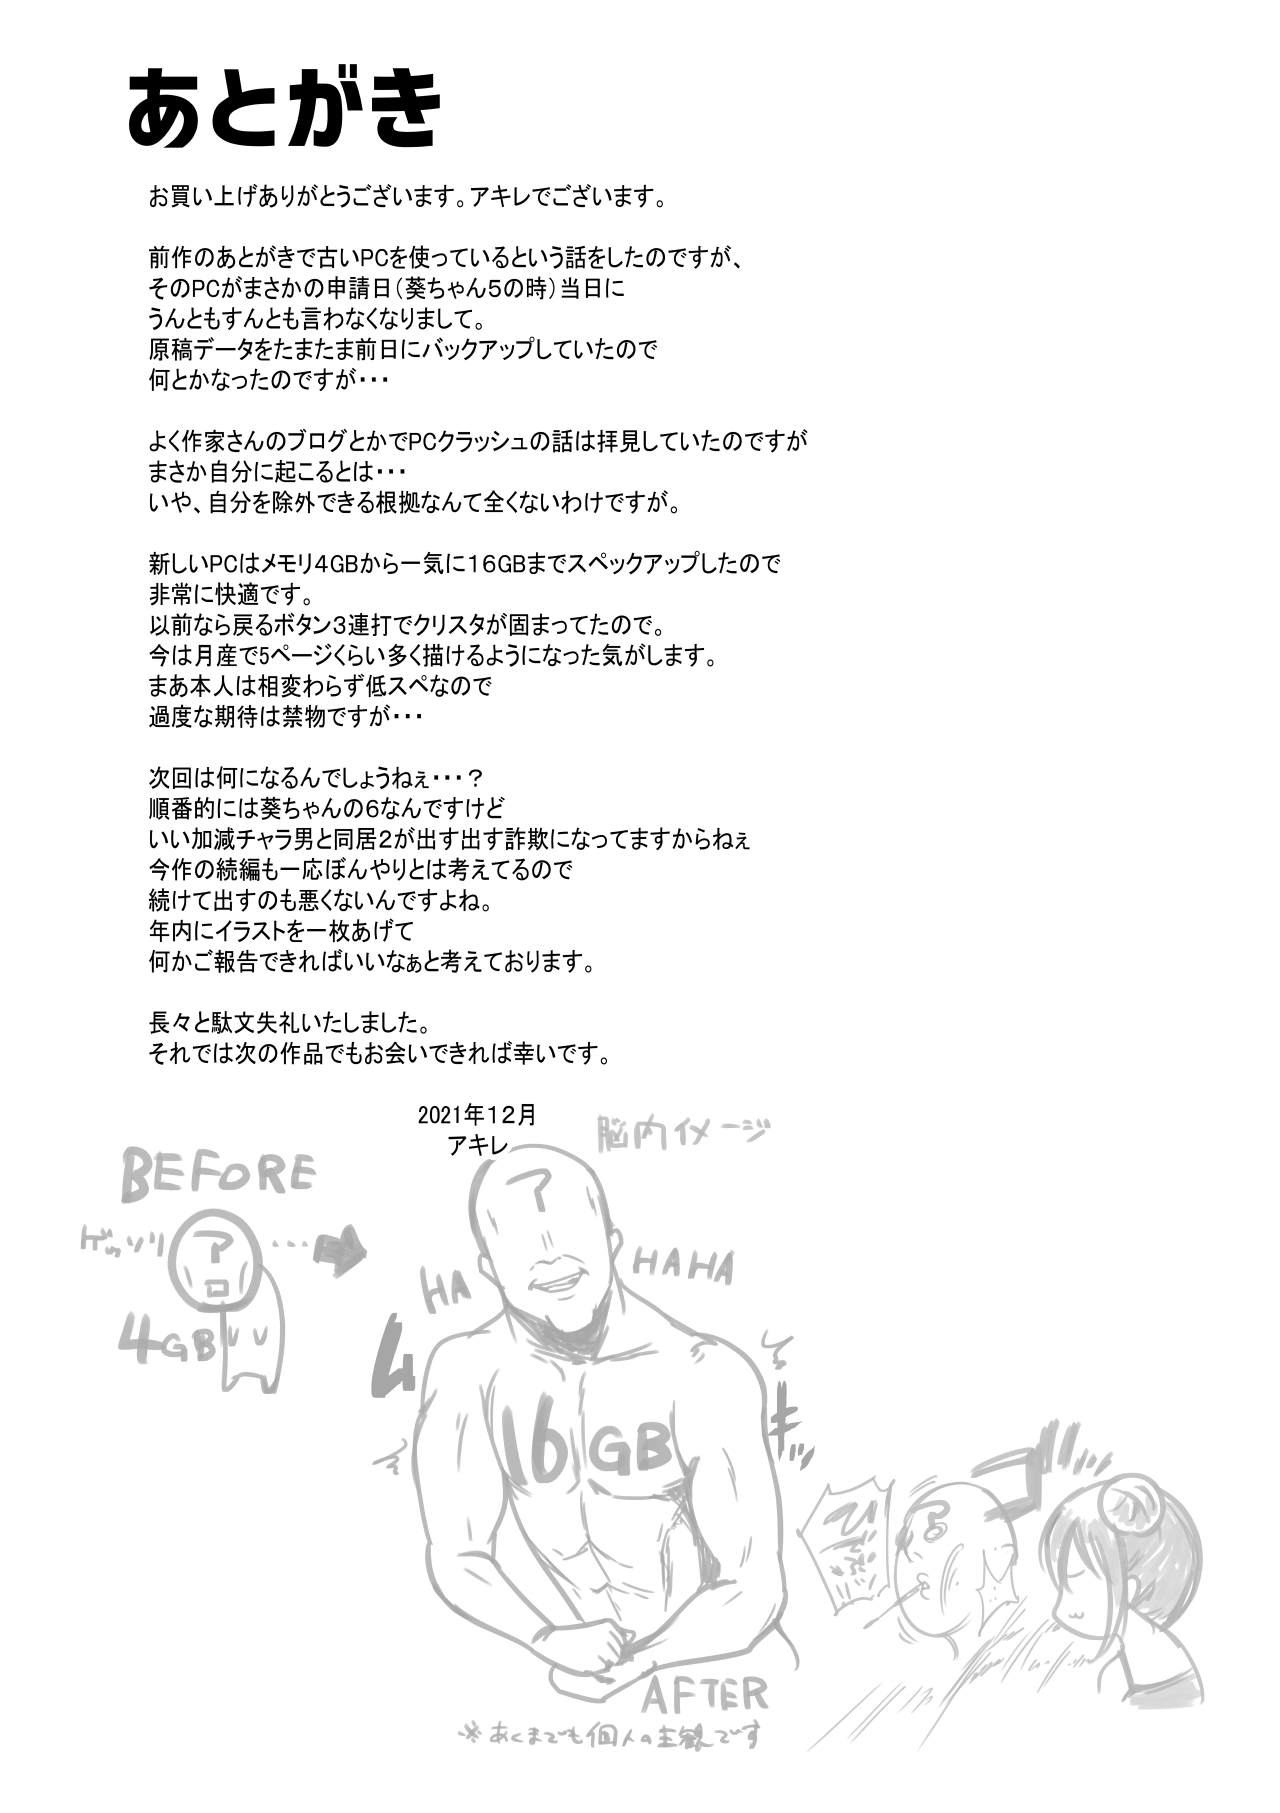 あとがき
お買い上げありがとうございます。アキレでございます。
前作のあとがきで古いPCを使っているという話をしたのですが、
そのPCがまさかの申請日(葵ちゃん5の時)当日に
うんともすんとも言わなくなりまして。
原稿データをたまたま前日にバックアップしていたので
何とかなったのですが・・・
よく作家さんのブログとかでPCクラッシュの話は拝見していたのですが
まさか自分に起こるとは・・・
いや、自分を除外できる根拠なんて全くないわけですが。
新しいPCはメモリ4GBから一気に16GBまでスペックアップしたので
非常に快適です。
以前なら戻るボタン3連打でクリスタが固まってたので。
今は月産で5ページくらい多く描けるようになった気がします。
まあ本人は相変わらず低スペなので
過度な期待は禁物ですが・・・
次回は何になるんでしょうねぇ・・・？
順番的には葵ちゃんの6なんですけど
いい加減チャラ男と同居2が出す出す詐欺になってますからねぇ
今作の続編も一応ぼんやりとは考えてるので
続けて出すのも悪くないんですよね。
年内にイラストを一枚あげて
何かご報告できればいいなぁと考えております。
長々と駄文失礼いたしました。
それでは次の作品でもお会いできれば幸いです。
2021年12月
アキレ
脳内イメージ
BEFORE
ゲッソリ
ア
・・・
4GB
ア
HA
HAHA
ムキッ
16GB
AFTER
※あくまでも個人の主観です